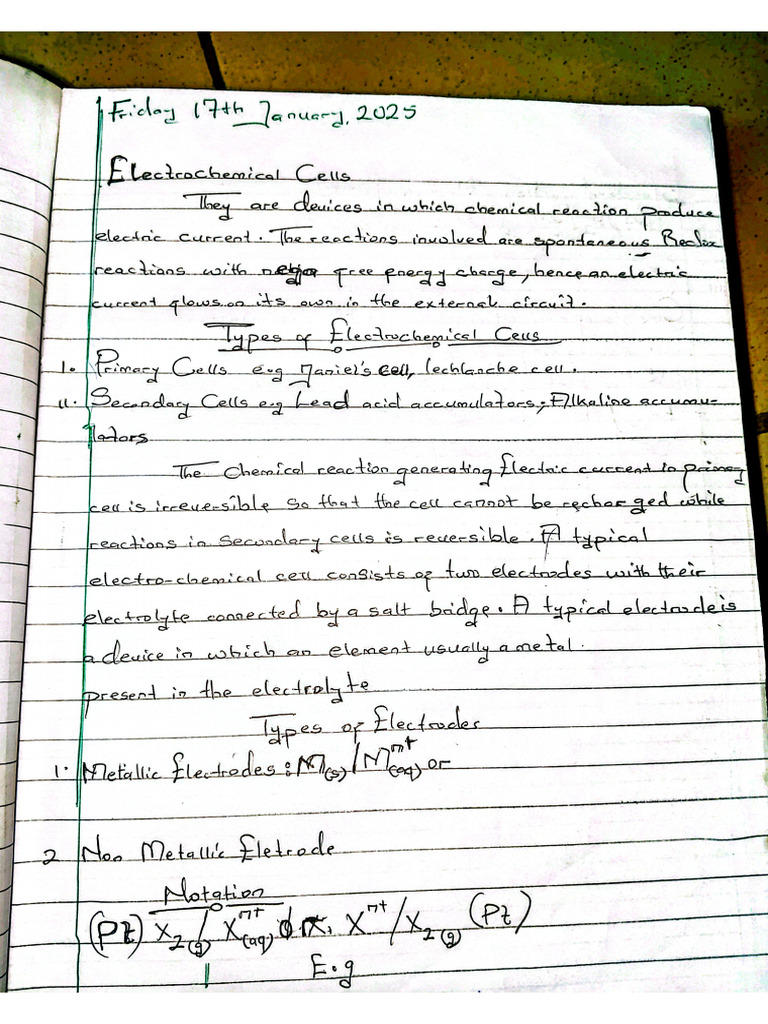 Friday 17th January, 2025
Electrochemical Cells
They are devices in which chemical reaction produce
electric current. The reactions involved are spontaneous Redox
reactions with free energy change, hence an electric
current flows on its own in the external circuit.
Types of Electrochemical Cells
1. Primary Cells e.g Daniel's cell, lechlanche cell.
11. Secondary Cells e.g Lead acid accumulators; Alkaline accumu-
lators
The Chemical reaction generating Electric current in primary
cell is irreversible so that the cell cannot be recharged while
reactions in secondary cells is reversible. A typical
electro-chemical cell consists of two electrodes with their
electrolyte connected by a salt bridge. A typical electrode is
a device in which an element usually a metal.
present in the electrolyte
Types of Electrodes
1. Metallic Electrodes: M(s)/M^n+(aq) or
2 Non Metallic Eletrode
Notation
(Pt) X2(g)/X^n+(aq) or. X^n+/X2(g) (Pt)
E.g